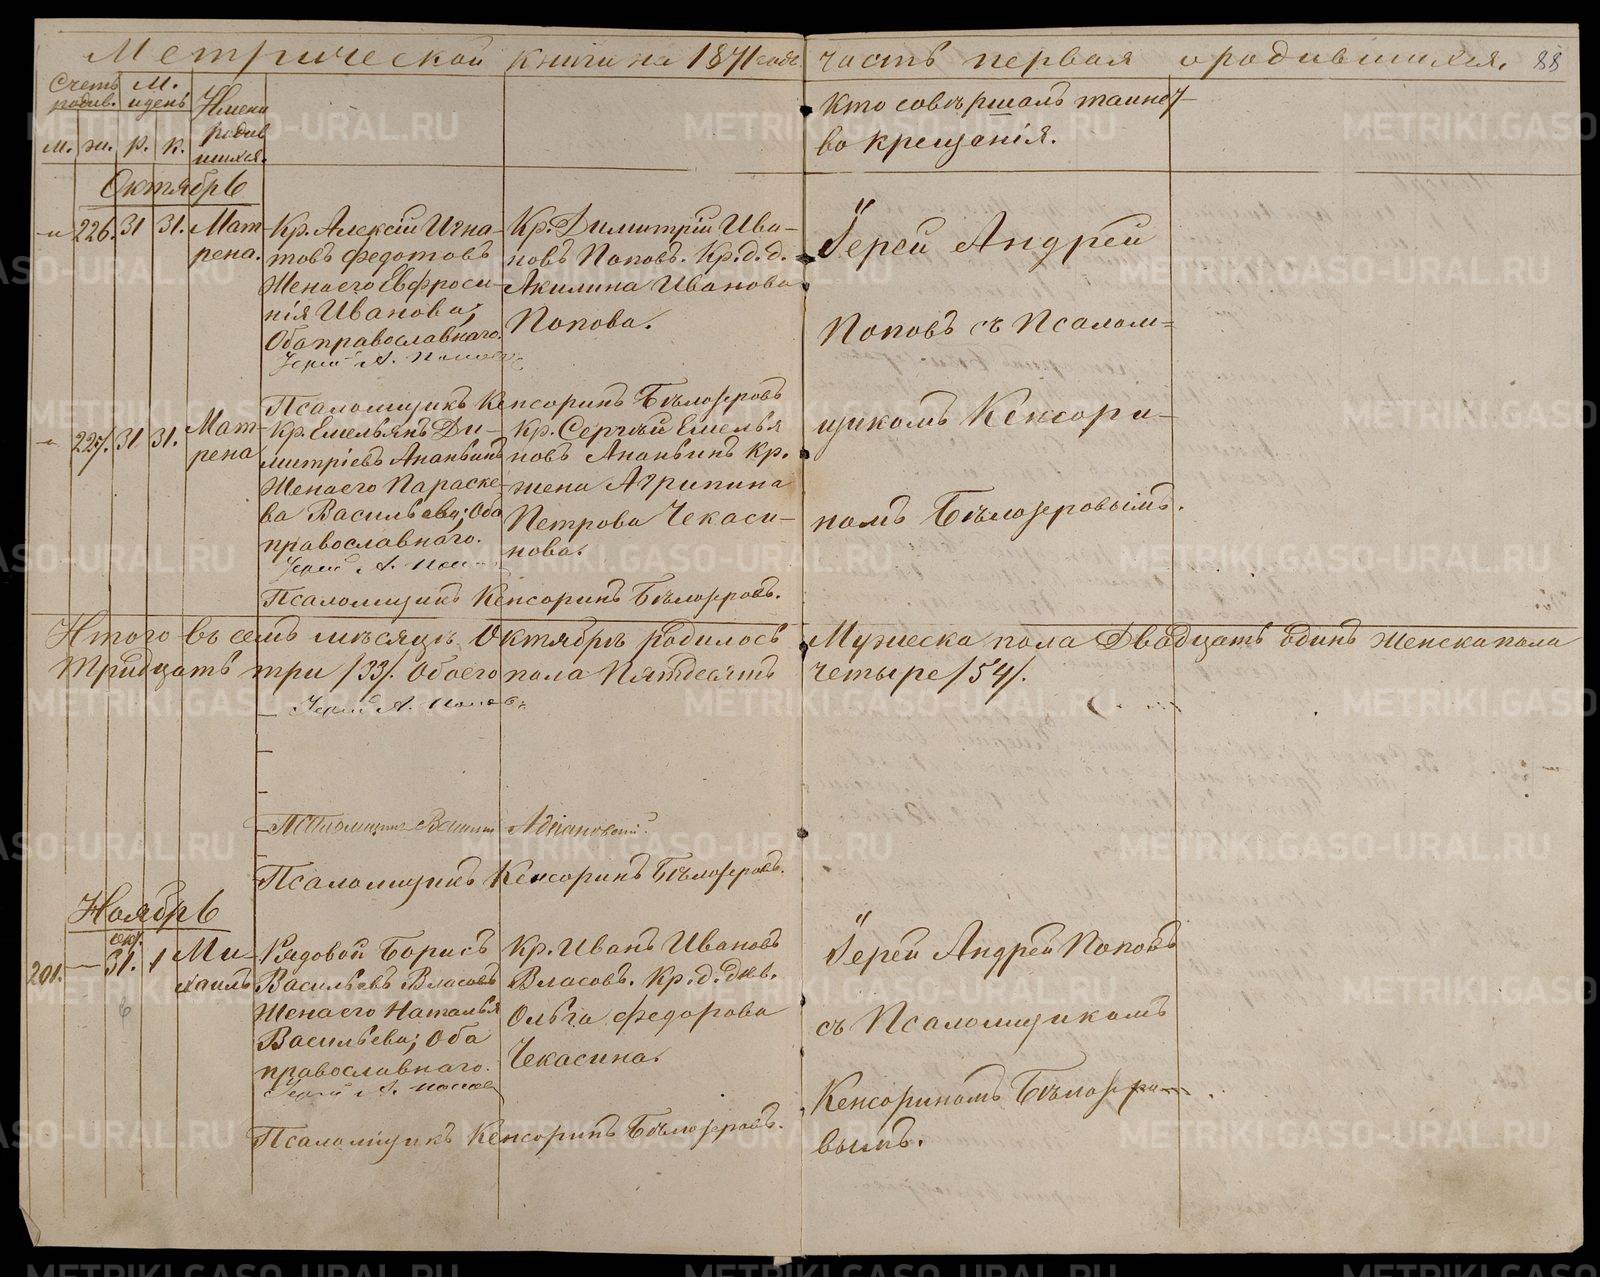 Метрической книги на 1871 годъ. часть первая о родившихся. 88
Счетъ родив. М. и день Имена родив шихся.
м. ж. р. к.
Кто совершалъ таинст
во крещенія.
Октябрь
226. 31 31. Мат
рена.
Кр. Алексій Игна-
товъ Федотовъ
Жена его Евфроси-
нія Иванова;
Оба православнаго.
Іерей А. Поповъ
Кр. Димитрій Ива-
новъ Поповъ. Кр. д. д.
Акилина Иванова
Попова.
Іерей Андрей
Поповъ съ Псалом=
щикомъ Кенсори-
номъ Бѣлозеровымъ.
Псаломщикъ Кенсоринъ Бѣлозеровъ
227. 31 31. Мат-
рена
Кр. Емельянъ Ди-
митріевъ Ананьинъ
Жена его Параске-
ва Васильева; Оба
православнаго.
Іерей А. Поп
Кр. Сергѣй Емелья
новъ Ананьинъ Кр.
жена Агрипина
Петрова Чекаси-
нова.
Псаломщикъ Кенсоринъ Бѣлозеровъ.
Итого въ семъ мѣсяцѣ Октябрѣ родилось Мужеска пола Двадцать одинъ Женска пола
Тридцать три /33/. Обоего пола Пятдесятъ четыре /54/.
Іерей А. Поповъ
Псаломщикъ Адріановскій
Псаломщикъ Кенсоринъ Бѣлозеровъ.
Ноябрь
Окт.
201. 31. 1 Ми-
хаилъ
Рядовой Борисъ
Васильевъ Власовъ
Жена его Наталья
Васильева; Оба
православнаго.
Іерей А. Поповъ
Кр. Иванъ Ивановъ
Власовъ. Кр. д. дѣв.
Ольга Федорова
Чекасина.
Іерей Андрей Поповъ
съ Псаломщикомъ
Кенсориномъ Бѣлозеро-
вымъ.
Псаломщикъ Кенсоринъ Бѣлозеровъ.
METRIKI.GASO-URAL.RU